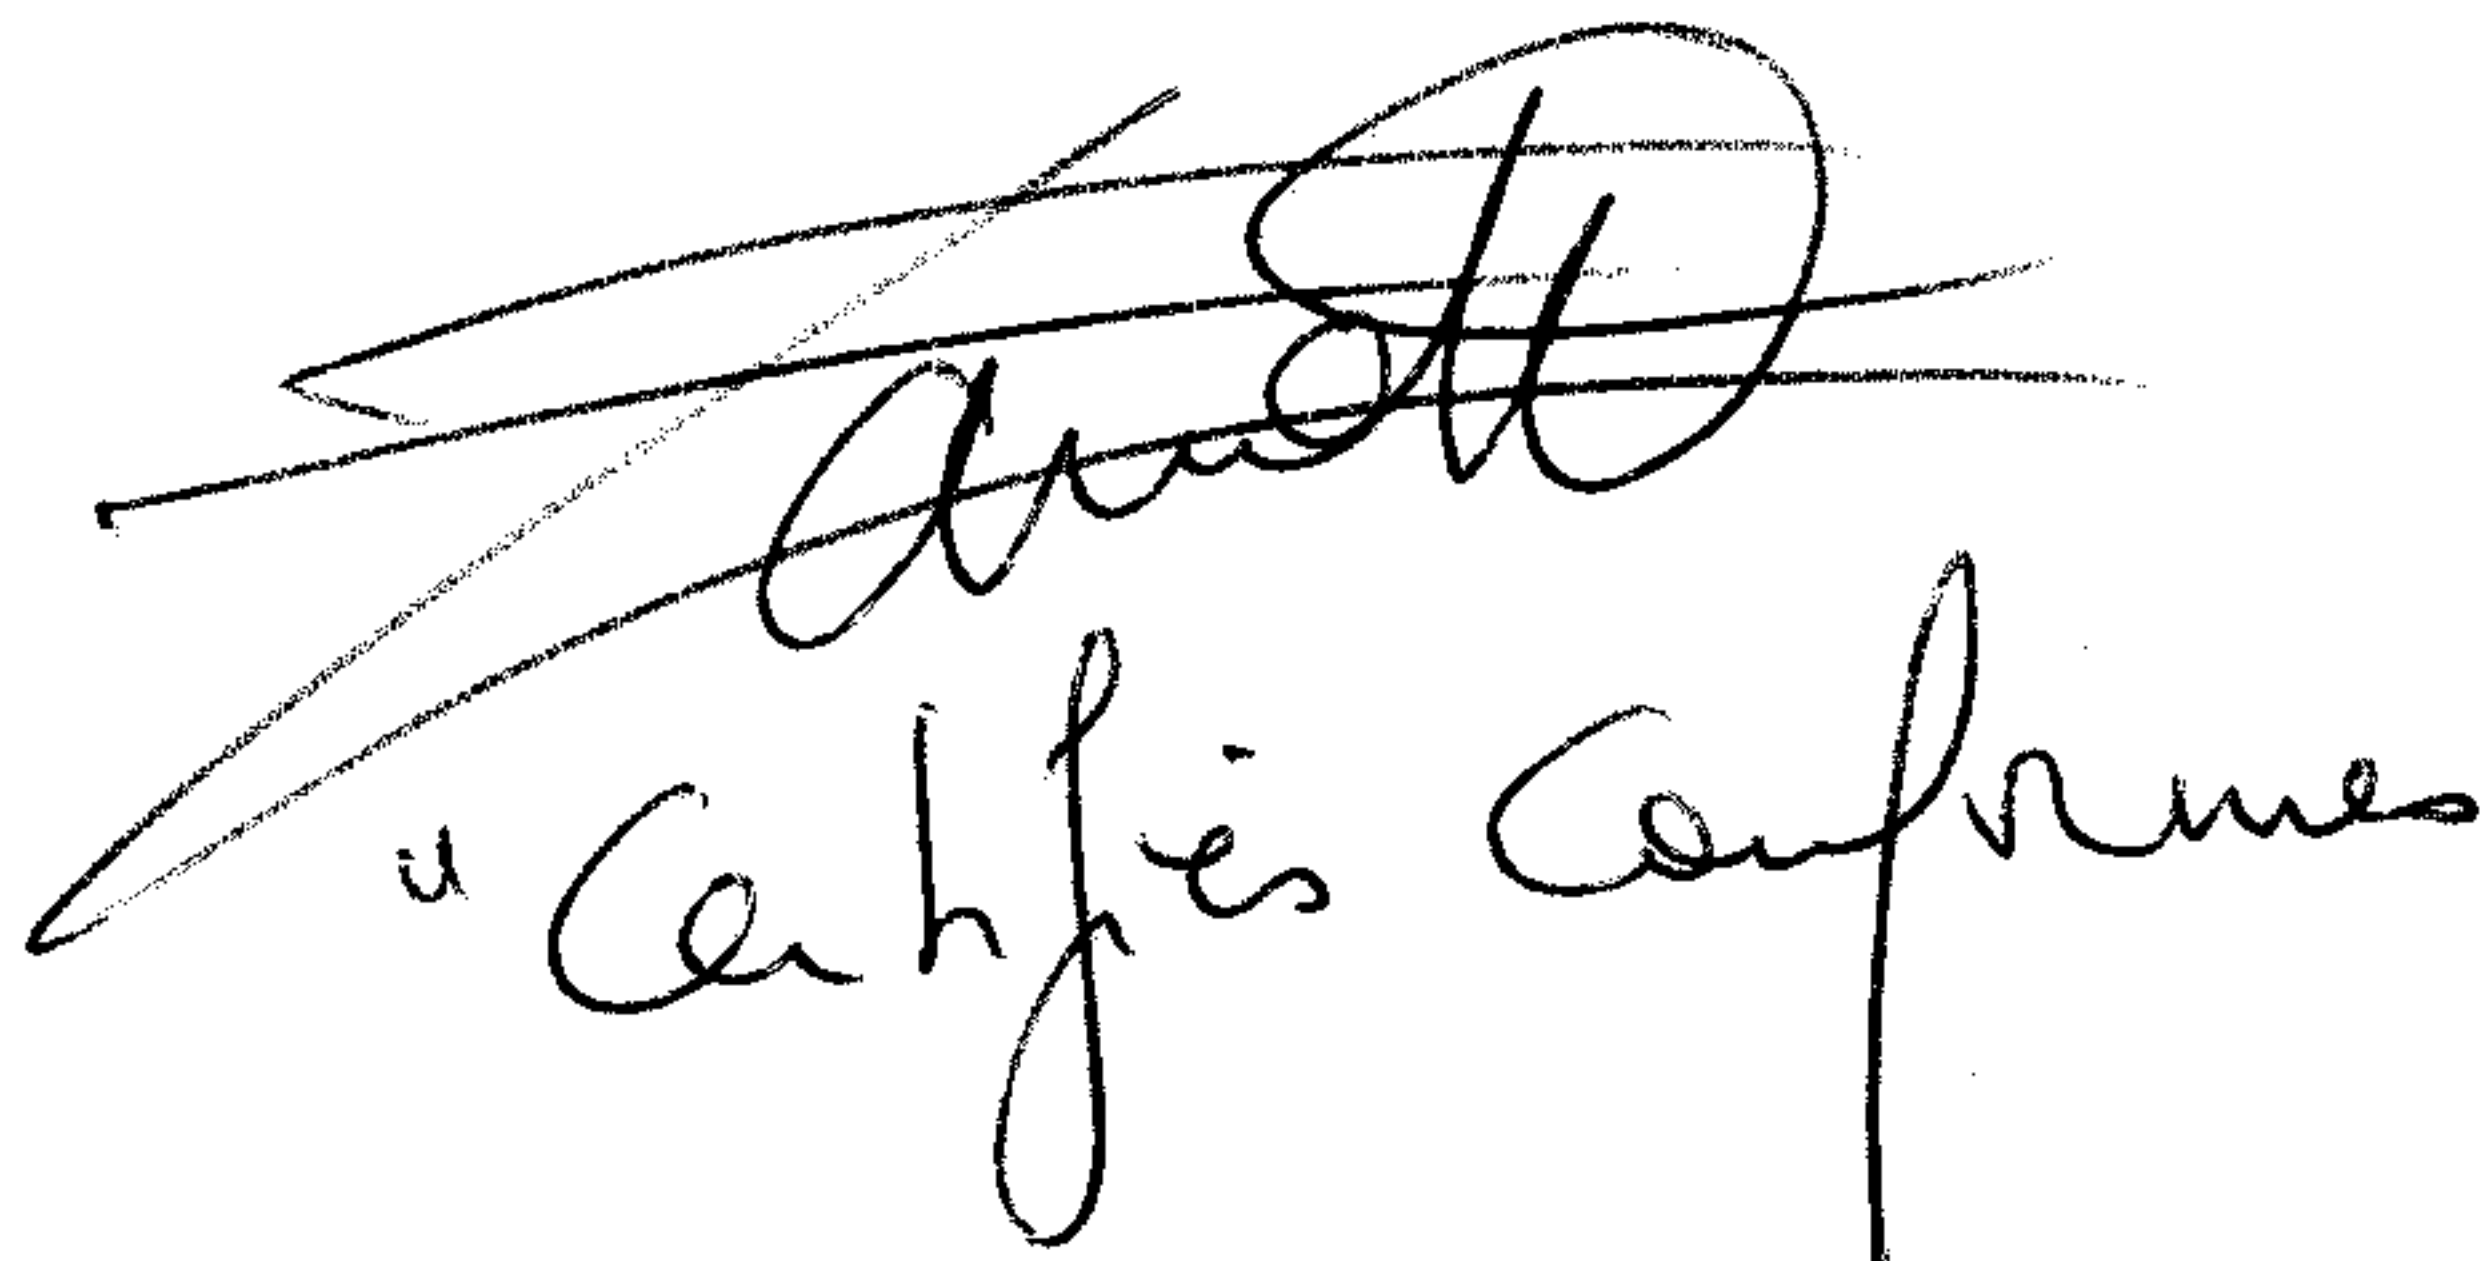 "Certifiés conformes